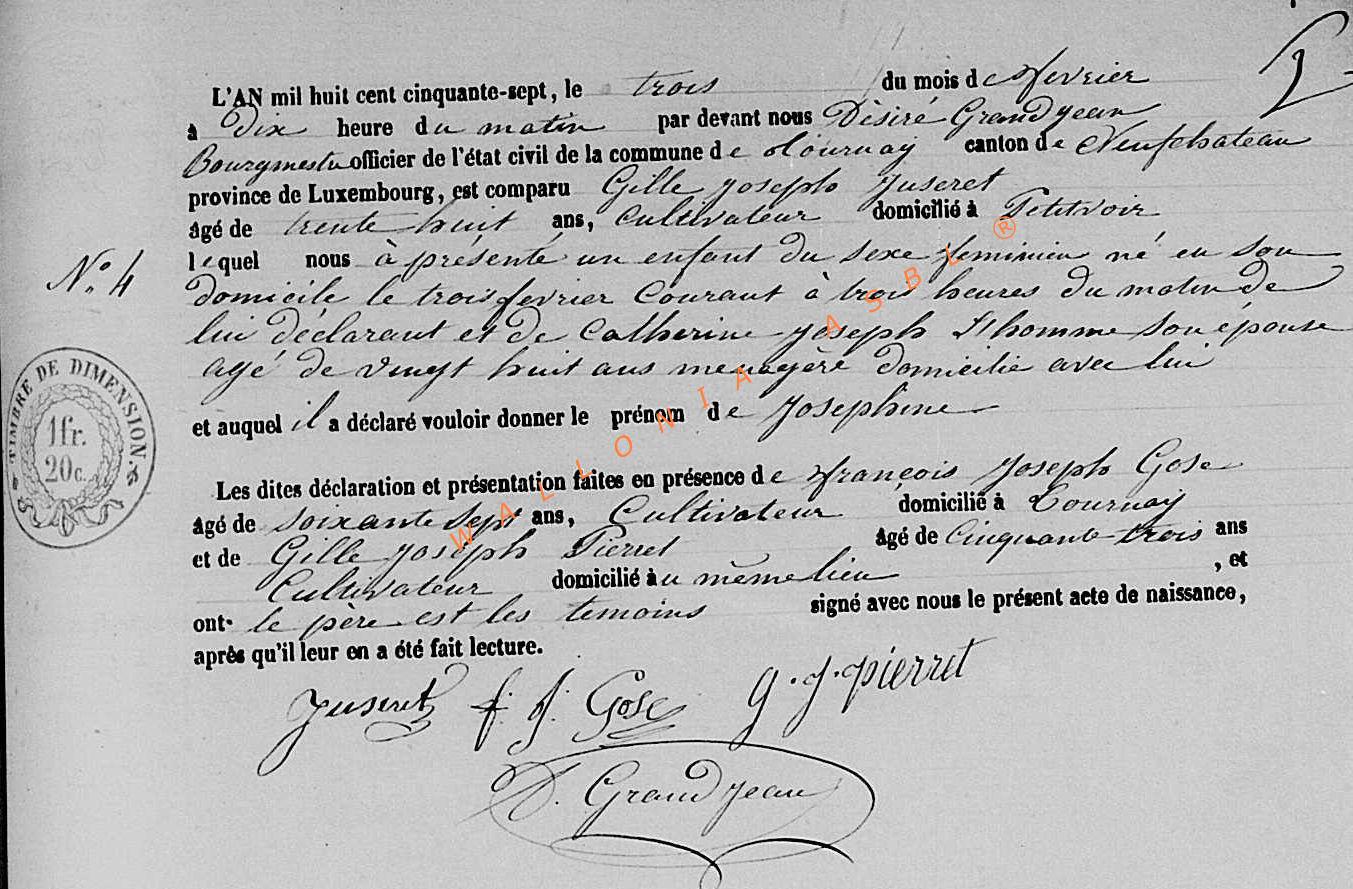 L'AN mil huit cent cinquante-sept, le trois du mois de fevrier
à Dix heure du matin par devant nous Dèsiré Grandjean
Bourgmestre officier de l'état civil de la commune de Tournay canton de Neufchateau
province de Luxembourg, est comparu Gille Joseph Juseret
âgé de trente huit ans, Cultivateur domicilié à Petitvoir
lequel nous à présenté un enfant du sexe feminien né en son
N.° 4
domicile le trois fevrier Courant à trois heures du matin de
lui déclarant et de Catherine Joseph L'homme son épouse
agé de vingt huit ans menagère domicilie avec lui
et auquel il a déclaré vouloir donner le prénom de Josephine
TIMBRE DE DIMENSION
1 fr.
20 c.
Les dites déclaration et présentation faites en présence de françois Joseph Gose
âgé de soixante sept ans, Cultivateur domicilié à Tournay
et de Gille Joseph Pierret âgé de Cinquante-trois ans
Cultivateur domicilié au même lieu , et
ont le père est les temoins signé avec nous le présent acte de naissance,
après qu'il leur en a été fait lecture.
Juseret f. J. Gose g. J. pierret
D. Grandjean
WALLONIA ASBL ®